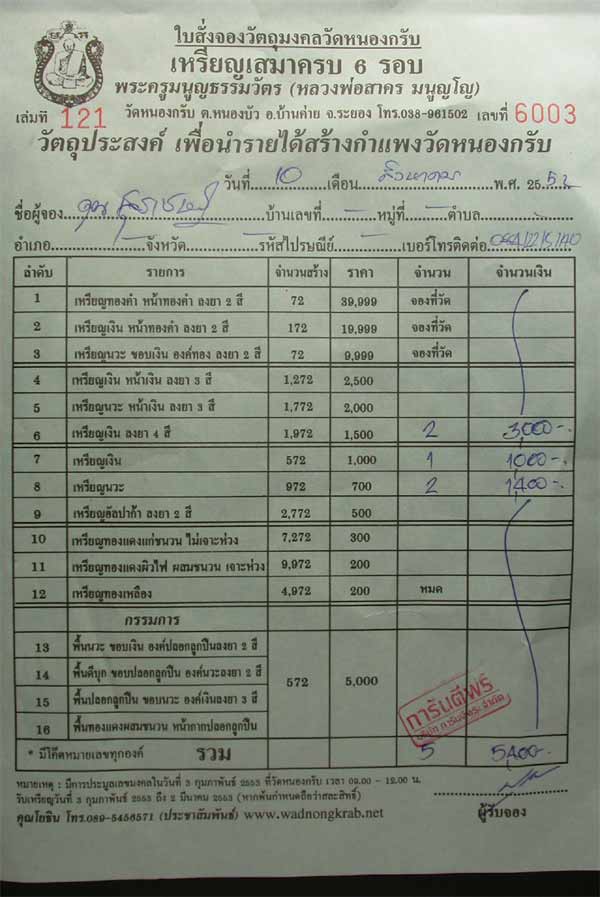 ใบสั่งจองวัตถุมงคลวัดหนองกรับ
เหรียญเสมาครบ 6 รอบ
พระครูมนูญธรรมวัตร (หลวงพ่อสาคร มนุญโญ)
เล่มที่ 121 วัดหนองกรับ ต.หนองบัว อ.บ้านค่าย จ.ระยอง โทร.038-961502 เลขที่ 6003
วัตถุประสงค์ เพื่อนำรายได้สร้างกำแพงวัดหนองกรับ
วันที่ 10 เดือน สิงหาคม พ.ศ. 2552
ชื่อผู้จอง คุณ บ้านเลขที่ - หมู่ที่ - ตำบล -
อำเภอ - จังหวัด - รหัสไปรษณีย์ - เบอร์โทรติดต่อ
ลำดับ รายการ จำนวนสร้าง ราคา จำนวน จำนวนเงิน
1 เหรียญทองคำ หน้าทองคำ ลงยา 2 สี 72 39,999 จองที่วัด
2 เหรียญเงิน หน้าทองคำ ลงยา 2 สี 172 19,999 จองที่วัด
3 เหรียญนวะ ขอบเงิน องค์ทอง ลงยา 2 สี 72 9,999 จองที่วัด
4 เหรียญเงิน หน้าเงิน ลงยา 3 สี 1,272 2,500
5 เหรียญนวะ หน้าเงิน ลงยา 3 สี 1,772 2,000
6 เหรียญเงิน ลงยา 4 สี 1,972 1,500 2 3,000-.
7 เหรียญเงิน 572 1,000 1 1000-.
8 เหรียญนวะ 972 700 2 1,400-.
9 เหรียญอัลปาก้า ลงยา 2 สี 2,772 500
10 เหรียญทองแดงแก่ชนวน ไม่เจาะห่วง 7,272 300
11 เหรียญทองแดงผิวไฟ ผสมชนวน เจาะห่วง 9,972 200
12 เหรียญทองเหลือง 4,972 200 หมด
กรรมการ
13 พื้นนวะ ขอบเงิน องค์ปลอกลูกปืนลงยา 2 สี
14 พื้นดีบุก ขอบปลอกลูกปืน องค์นวะลงยา 2 สี
572 5,000
15 พื้นปลอกลูกปืน ขอบนวะ องค์เงินลงยา 3 สี
16 พื้นทองแดงผสมชนวน หน้ากากปลอกลูกปืน
การันตีพรี
* มีโค๊ตหมายเลขทุกองค์ รวม 5 5,400-.
หมายเหตุ : มีการประมูลเลขมงคลในวันที่ 3 กุมภาพันธ์ 2553 ที่วัดหนองกรับ เวลา 09.00 - 12.00 น.
รับเหรียญวันที่ 3 กุมภาพันธ์ 2553 ถึง 2 มีนาคม 2553 (หากพ้นกำหนดถือว่าสละสิทธิ์)
คุณโยธิน โทร.089-5456571 (ประชาสัมพันธ์) www.wadnongkrab.net
ผู้รับจอง